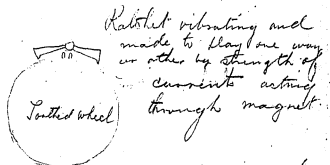 Ratchet vibrating and
made to play one way
or other by strength of
currents acting
through magnet.
Toothed wheel